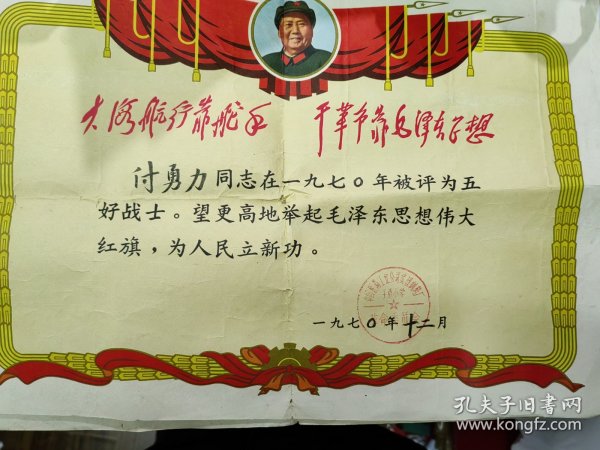 大海航行靠舵手 干革命靠毛泽东思想
付勇力同志在一九七〇年被评为五
好战士。望更高地举起毛泽东思想伟大
红旗，为人民立新功。
一九七〇年十二月
孔夫子旧书网
www.kongfz.com